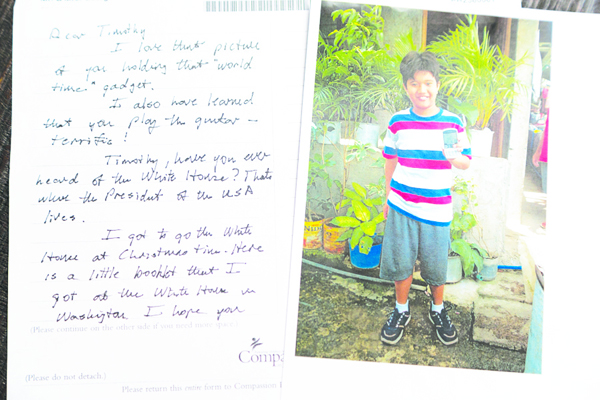 Dear Timothy
I love that picture
of you holding that "world
time" gadget.
I also have learned
that you play the guitar –
terrific!
Timothy, have you ever
heard of the White House? Thats
where the President of the USA
lives.
I got to go the White
House at Christmas time. Here
is a little booklet that I
got at the White House in
Washington I hope you
(Please continue on the other side if you need more space)
Compas
(Please do not detach.)
Please return this entire form to Compassion